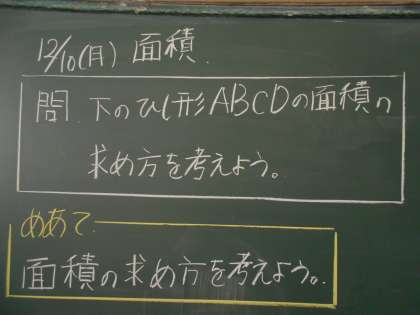 12/10(月) 面積.
問. 下のひし形ABCDの面積の
求め方を考えよう。
めあて
面積の求め方を考えよう。